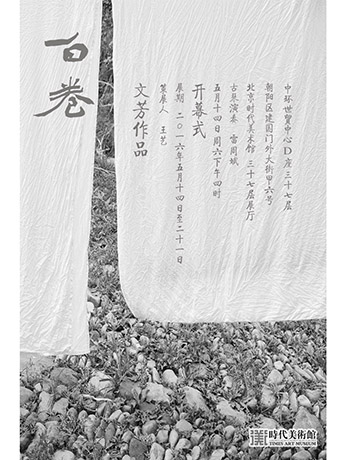 中环世贸中心D座三十七层
朝阳区建国门外大街甲六号
北京时代美术馆 三十七层展厅
古琴演奏 雷周斌
五月十四日 周六下午四时
开幕式
展期 二〇一六年五月十四日至二十一日
策展人 王艺
文芳作品
白卷
時代美術館
TIMES ART MUSEUM